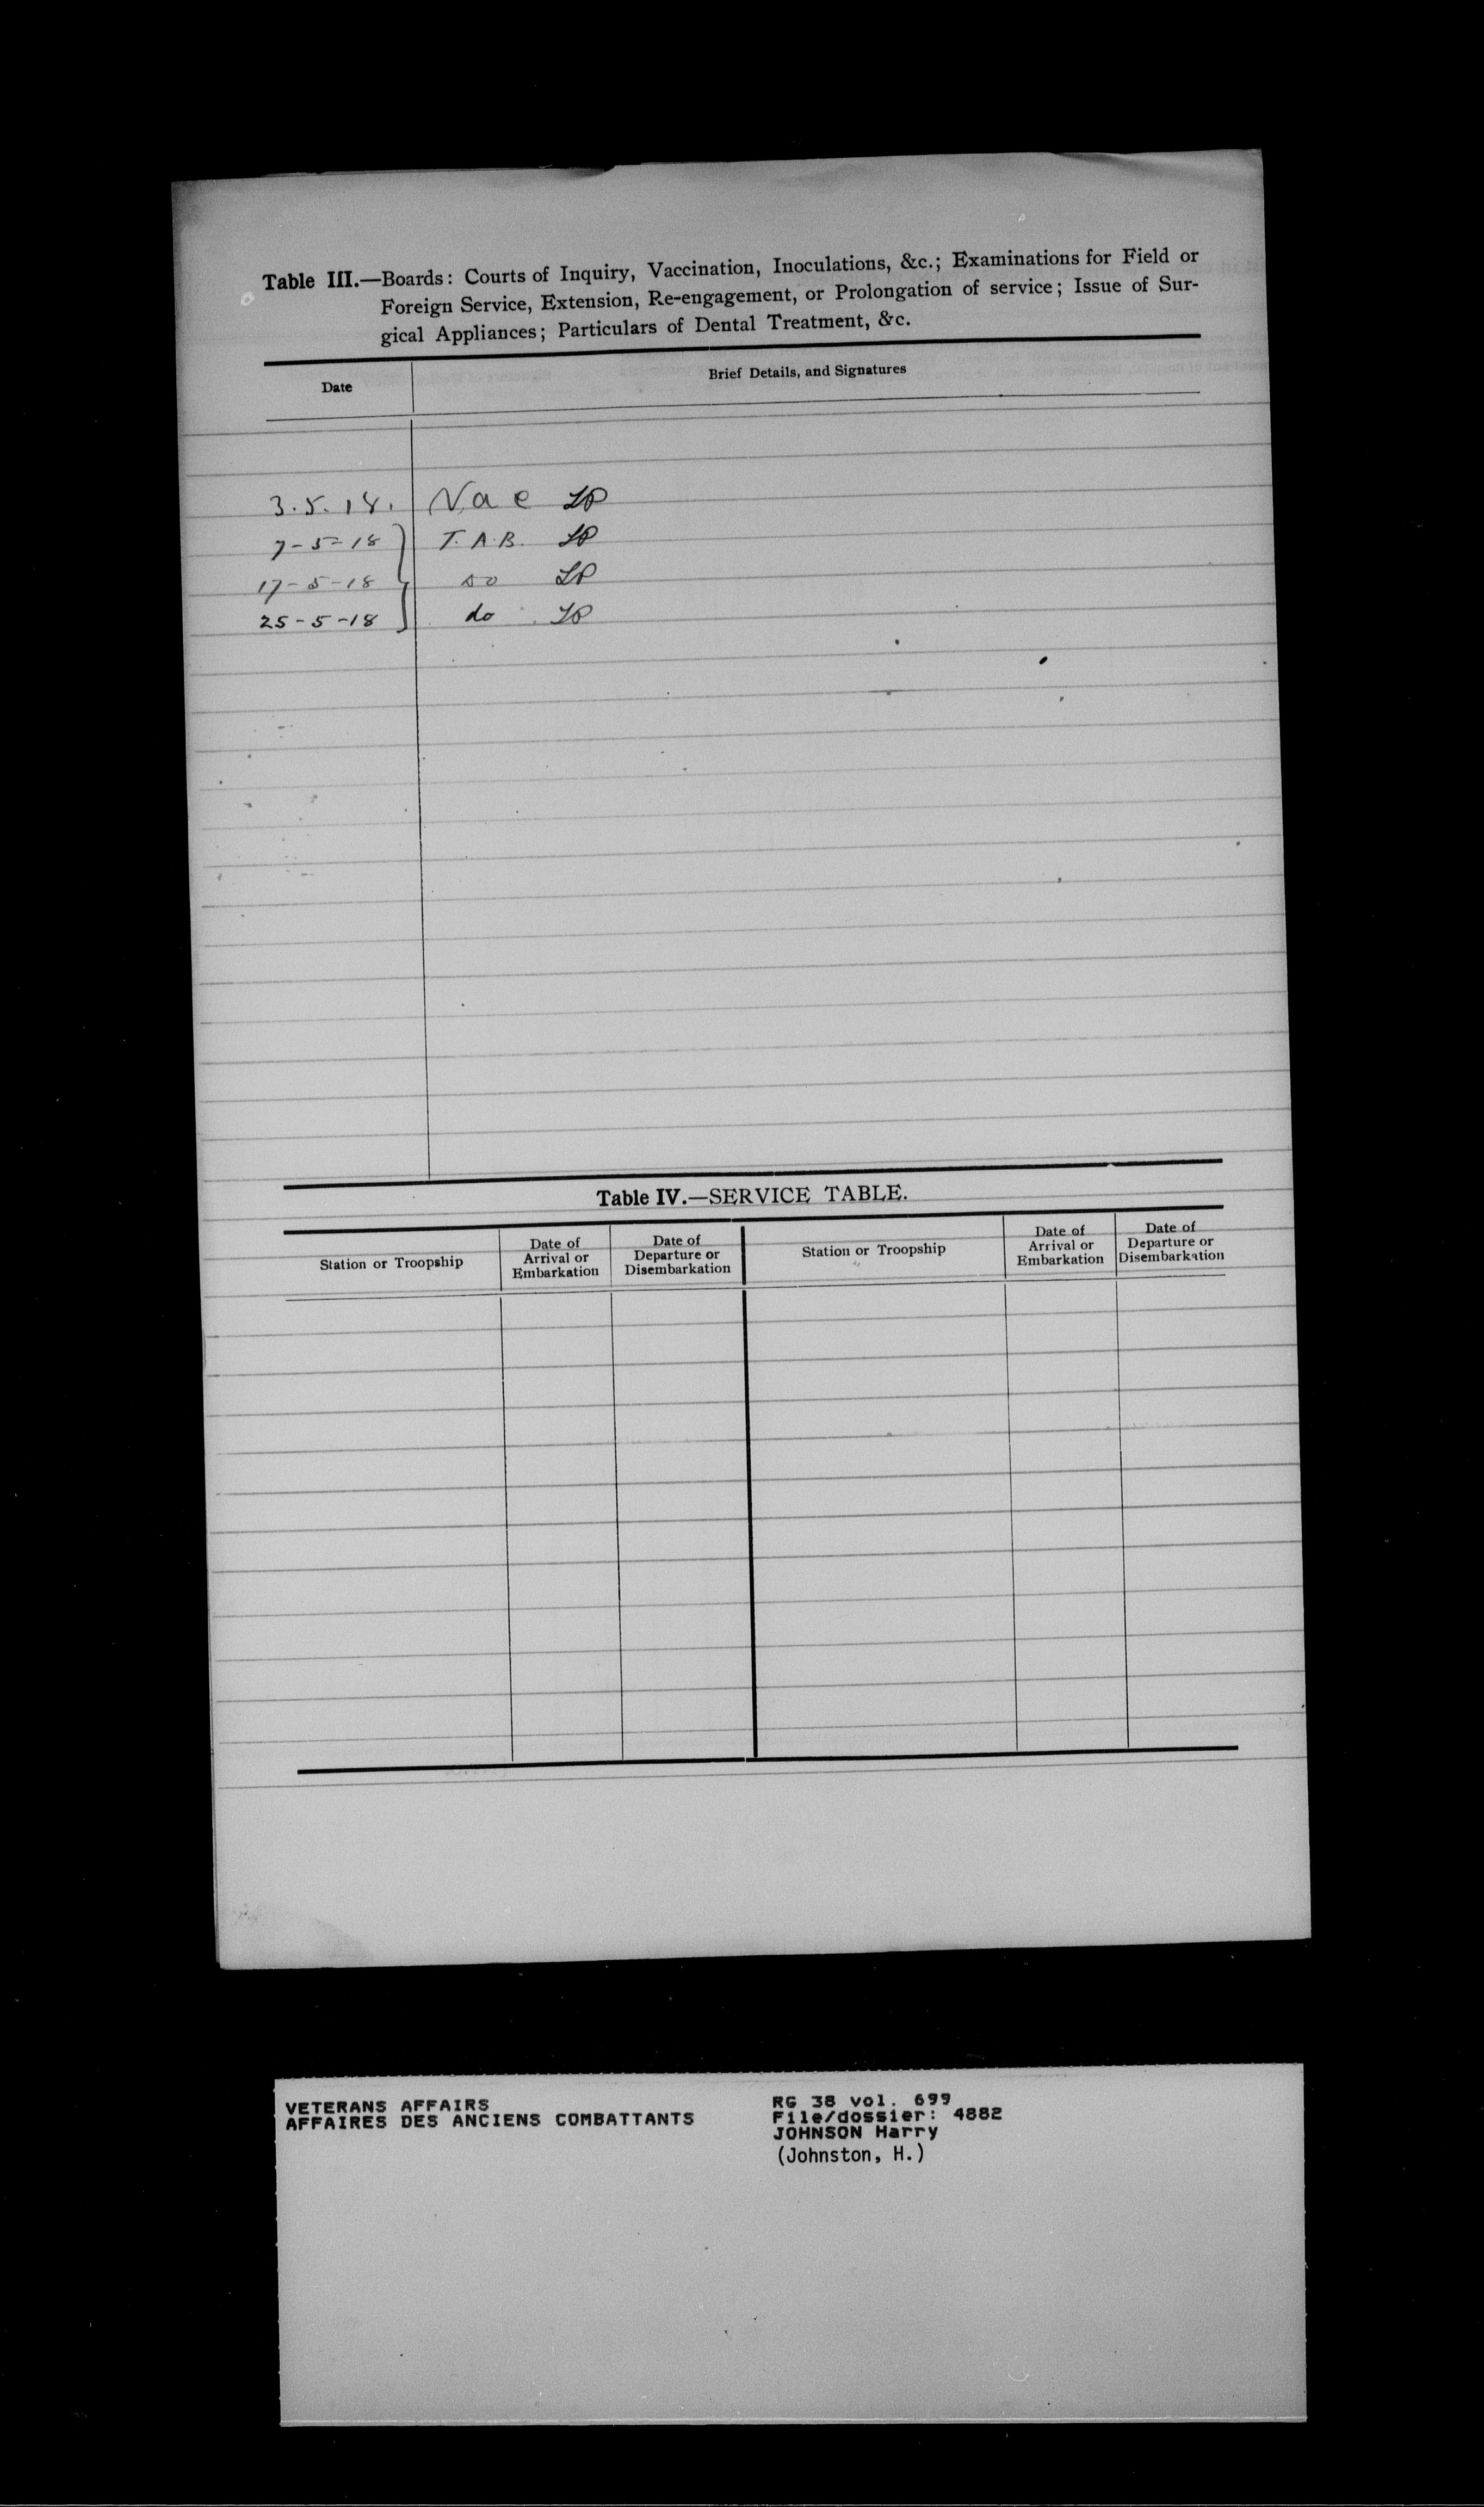 Table III.—Boards: Courts of Inquiry, Vaccination, Inoculations, &c.; Examinations for Field or
Foreign Service, Extension, Re-engagement, or Prolongation of service; Issue of Sur-
gical Appliances; Particulars of Dental Treatment, &c.
Date Brief Details, and Signatures
3.5.18. Vac
7-5-18 T.A.B.
17-5-18 do
25-5-18 do
Table IV.—SERVICE TABLE.
Station or Troopship Date of Arrival or Embarkation Date of Departure or Disembarkation Station or Troopship Date of Arrival or Embarkation Date of Departure or Disembarkation
VETERANS AFFAIRS
AFFAIRES DES ANCIENS COMBATTANTS
RG 38 vol. 699
File/dossier: 4882
JOHNSON Harry
(Johnston, H.)